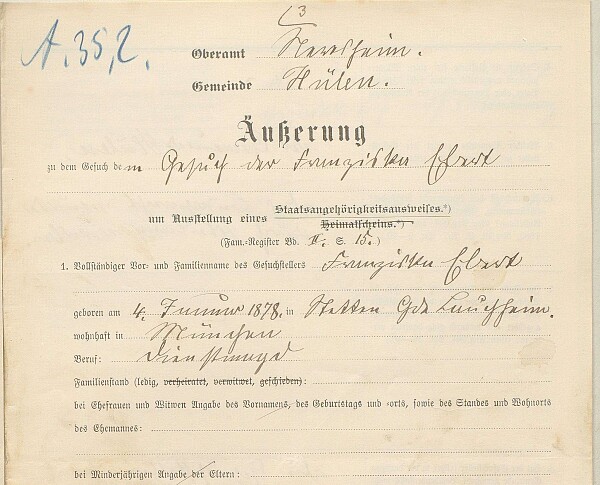 3
A. 35,2.
Oberamt Neresheim.
Gemeinde Hülen.
Äußerung
zu dem Gesuch dem Gesuch der Franziska Ebert
um Ausstellung eines Staatsangehörigkeitsausweises.*)
Heimatscheins.*)
(Fam.-Register Bd. II. S. 15.)
1. Vollständiger Vor- und Familienname des Gesuchstellers Franziska Ebert
geboren am 4. Januar 1878. in Stetten Gde Lauchheim.
wohnhaft in München
Beruf: Dienstmagd
Familienstand (ledig, verheiratet, verwitwet, geschieden):
bei Ehefrauen und Witwen Angabe des Vornamens, des Geburtstags und -orts, sowie des Standes und Wohnorts
des Ehemannes:
bei Minderjährigen Angabe der Eltern: